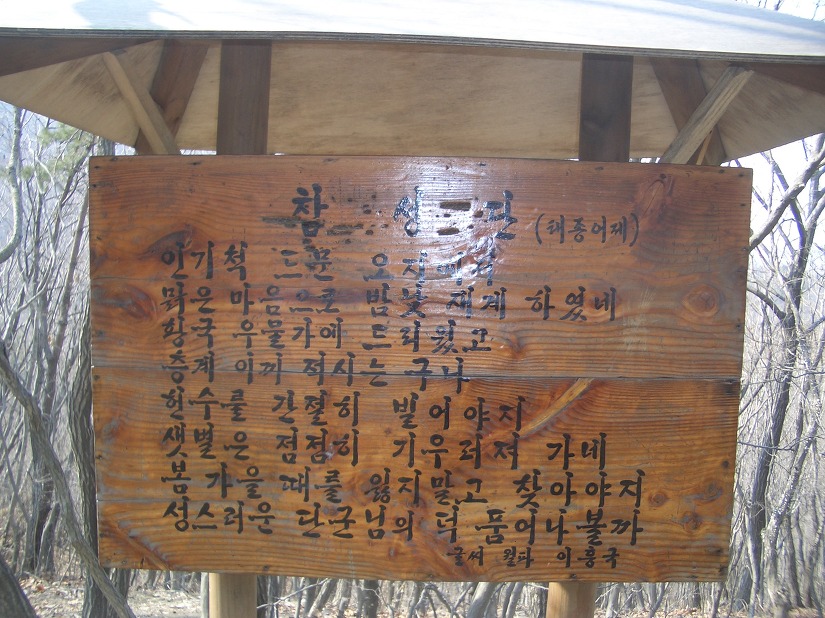 참성단 (태종어제)
인기척 드문 오지에서
맑은 마음으로 밤낮 재계 하였네
황국 우물가에 드리웠고
층계 이끼 적시는구나
헌수를 간절히 빌어야지
샛별은 점점히 기우러져 가네
봄 가을 때를 잃지말고 찾아야지
성스러운 단군님의 덕 품어나 볼까
글씨 월파 이흥국